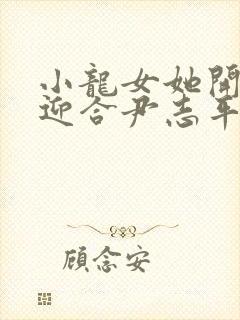 小龍女她開
迎合尹志平
顧念安